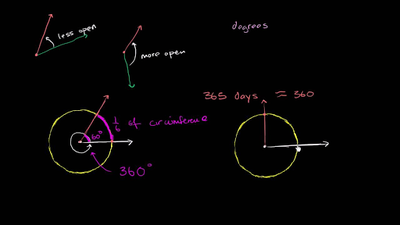 degrees
less open
more open
365 days ≈ 360
1/6 of circumference
60°
360°